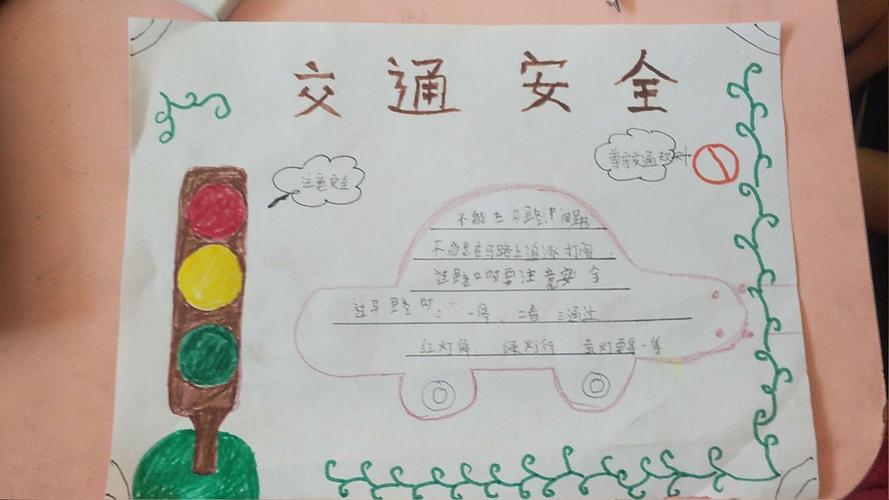 交通安全
注意安全
遵守交通规则
不能在马路中间跑
不能在马路上追逐打闹.
过路口时要注意安全
过马路时：一停、二看、三通过
红灯停、绿灯行 黄灯要等一等